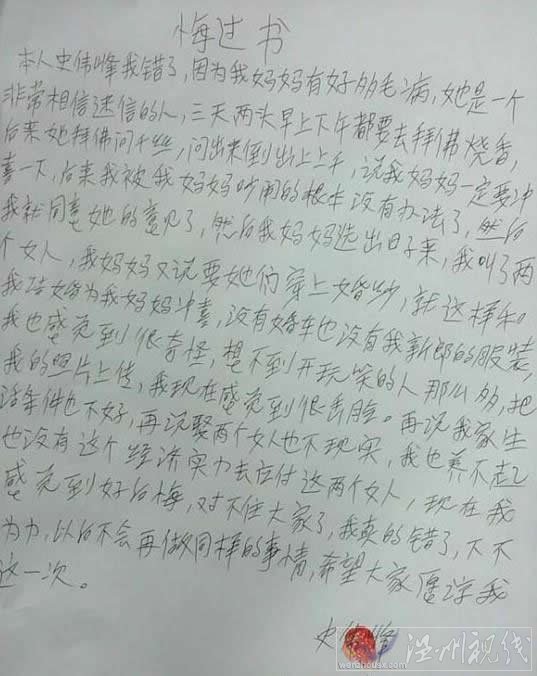 悔过书
本人史伟峰我错了,因为我妈妈有好多毛病,她是一个
非常相信迷信的人,三天两头早上下午都要去拜佛烧香,
后来她拜佛问,问出来倒出上上,说我妈妈一定要冲
喜一下,后来我被我妈妈吵闹的根本没有办法了,然后
我就同意她的意见了,然后我妈妈选出日子来,我叫了两
个女人,我妈妈又说要她们穿上婚纱,就这样和
我结婚为我妈妈冲喜,没有婚车也没有我新郎的服装,
我也感觉到很奇怪,想不到开玩笑的人那么多,把
我的照片上传,我现在感觉到很丢脸。再说我家生
活条件也不好,再说娶两个女人也不现实,我也养不起
也没有这个经济实力去应付这两个女人,现在我
感觉到好后悔,对不住大家了,我真的错了,下不
为力,以后不会再做同样的事情,希望大家原谅我
这一次。
史伟峰
温州视线
wenzhousx.com